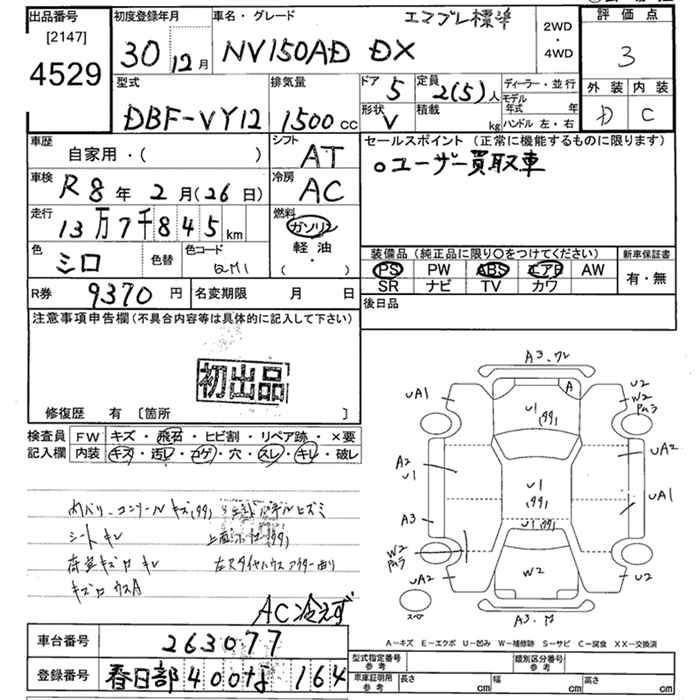 出品番号 初度登録年月 車名・グレード エマブレ標準 2WD・4WD 評価点
[2147]
4529
30年12月 NV150AD DX 3
型式 排気量 ドア 5 定員 2(5)人 ディーラー・並行 外装 内装
DBF-VY12 1500cc 形状 V 積載 kg モデル年式 年 ハンドル 左・右 D C
車歴 自家用・( ) シフト AT セールスポイント (正常に機能するものに限ります)
。ユーザー買取車
車検 R8年2月(26日) 冷房 AC
走行 13万7千845km 燃料 ガソリン
軽油
・( )
色 シロ 色替 色コード QM1
装備品 (純正品に限り○をつけてください) 新車保証書
PS PW ABS エアB AW 有・無
SR ナビ TV カワ
R券 9370円 名変期限 月 日 後日品
注意事項申告欄 (不具合内容等は具体的に記入して下さい)
初出品
修復歴 有 [箇所 ]
検査員記入欄 FW キズ・飛石・ヒビ割・リペア跡・×要
内装 キズ・汚レ・コゲ・穴・スレ・キレ・破レ
内バリ、コンソールキズ(99)
シートキレ
荷室キズロキレ
左タイヤハウスアウター曲り
キズロウスA
AC冷えず
A3、ワレ
UA1
A
U2
W2
U1(99)
A2
U1
UA2
U1(99)
UA1
A3
U1(99)
W2
UA2
W2
U2
スペア
A-キズ E-エクボ U-凹み W-補修跡 S-サビ C-腐食 XX-交換済
車台番号 263077
登録番号 春日部 400 な 164
型式指定番号 参考 類別区分番号 参考
車庫証明用 参考 長さ cm 幅 cm 高さ cm